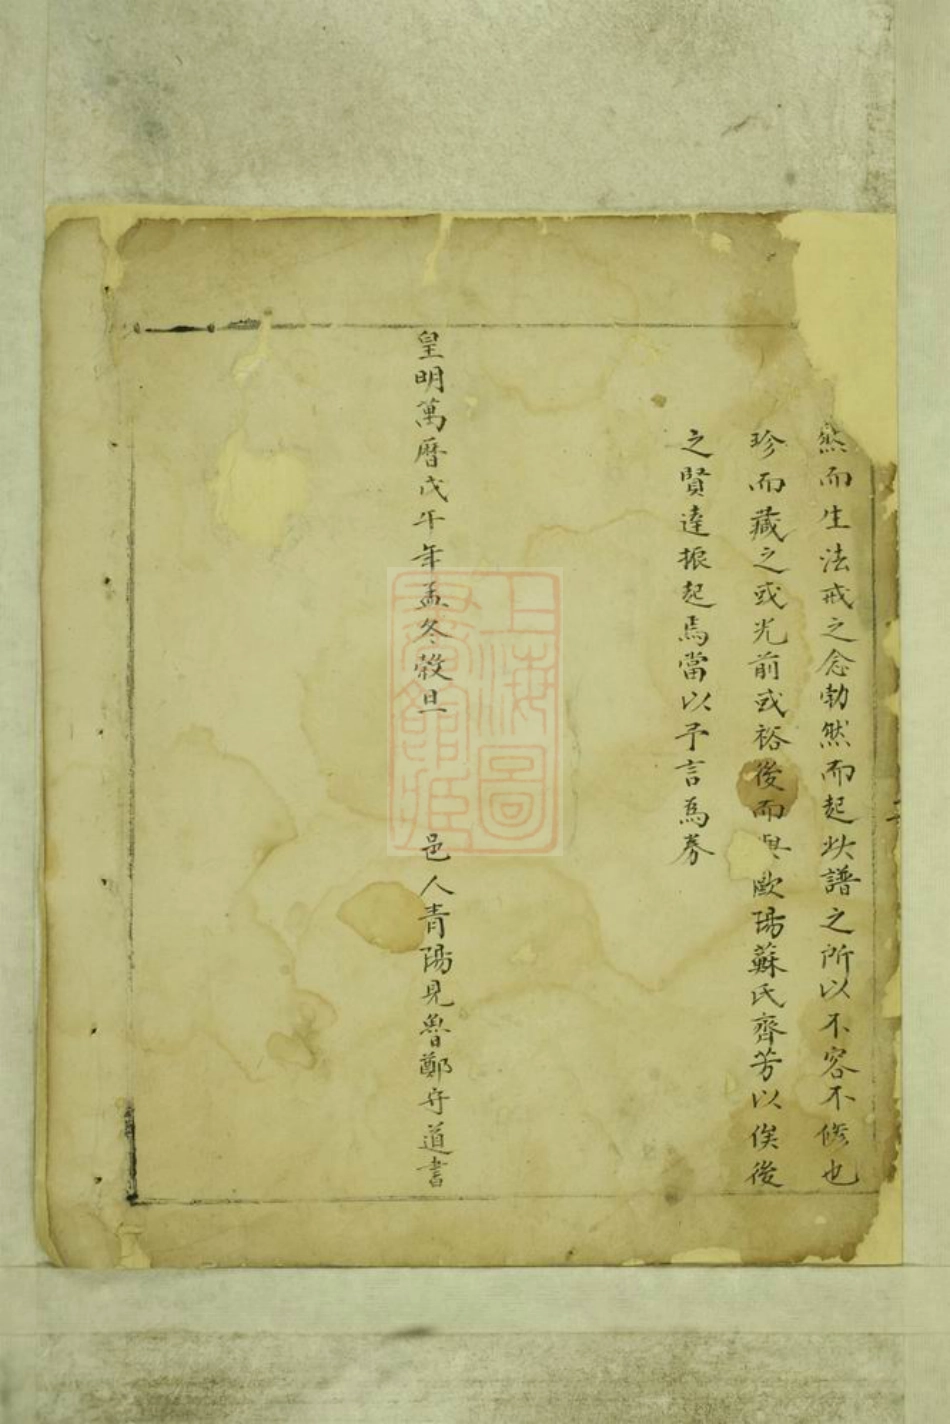 然而生法戒之念勃然而起此譜之所以不容不修也
珍而藏之或光前或裕後而與歐陽蘇氏齊芳以俟後
之賢達振起焉當以予言為券
皇明萬曆戊午年孟冬穀旦 邑人青陽見魯鄭守道書
上海圖書館藏